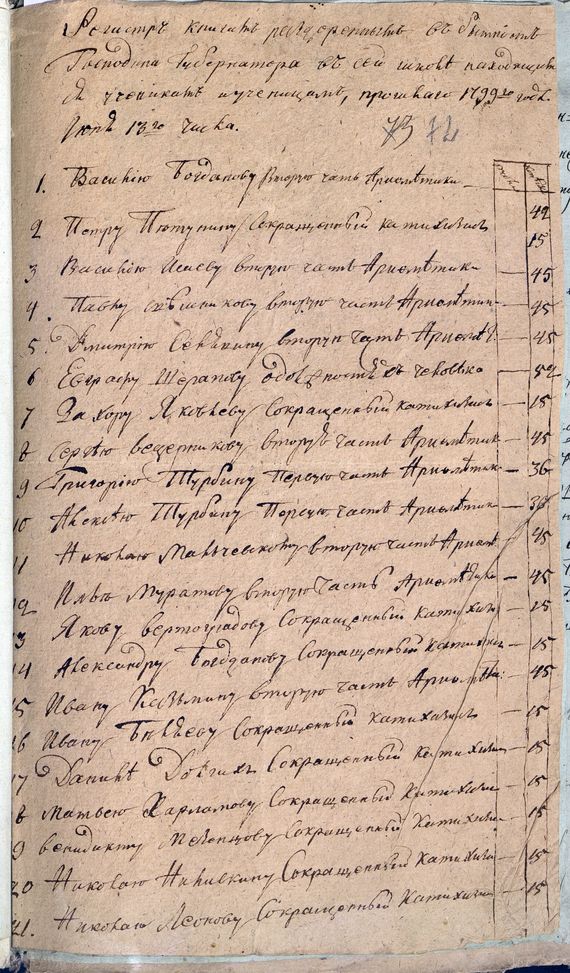 Регистръ книгамъ розданнымъ въ бытность
Господина Губернатора въ сей школѣ находящим
ся ученикамъ и ученицамъ, прошлаго 1799го года
Июня 13го числа.
73 72
1. Василию Богданову вторую часть Ариѳметики — 42
2 Петру сокращенный катихизисъ 15
3 Василию Исаеву вторую часть Ариѳметики — 45
4. Павлу вторую часть Ариѳметики — 45
5. Дмитрию Сенякину вторую часть Ариѳмет: — 45
6 Евграфу о должностяхъ человѣка — 52
7 Захару Яковлеву Сокращенный катихизисъ — 15
8 Сергѣю вторую часть Ариѳметик — 45
9 Григорию Шурбину Первую часть Ариѳметик — 36
10 Алексѣю Шурбину Первую часть Ариѳметик — 36
11 Николаю вторую часть Ариѳмет 45
12 Илью Муратову вторую часть Ариѳметики — 45
13 Якову вертоградову Сокращенный Катихизи — 15
14 Александру Богданову Сокращенный Катихизи — 15
15 Ивану Казьмину вторую часть Ариѳмети: 45
16 Ивану Бѣляеву Сокращенный катихизисъ — 15
17 Данилѣ Долгихъ Сокращенный Катихизи — 15
18 Матвею Харламову Сокращенный Катихизи — 15
19 венидикту Сокращенный Катихизи — 15
20 Николаю Сокращенный Катихизи — 15
21. Николаю Леонову Сокращенный Катихизи — 15